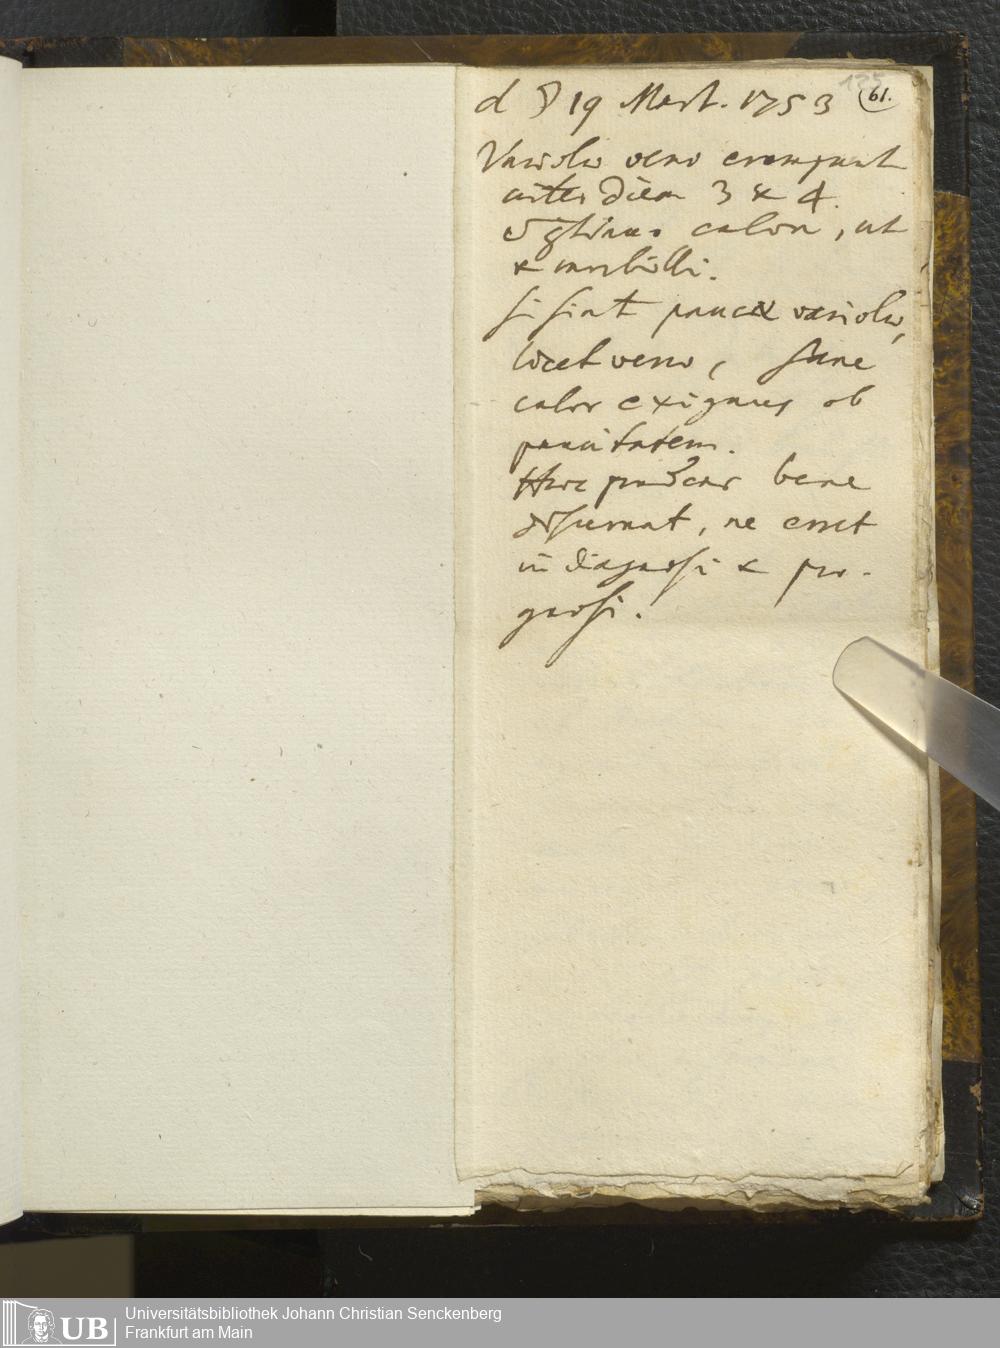 d ☽ 19 Mart. 1753
61.
Variolæ veræ erumpunt
inter diem 3 & 4.
calore, ut
& morbilli.
si sint paucæ variolæ,
licet veræ, sane
calor exiguus ob
paucitatem.
Hoc bene
, ne erret
in diagnosi & pro-
gnosi.
UB
Universitätsbibliothek Johann Christian Senckenberg
Frankfurt am Main